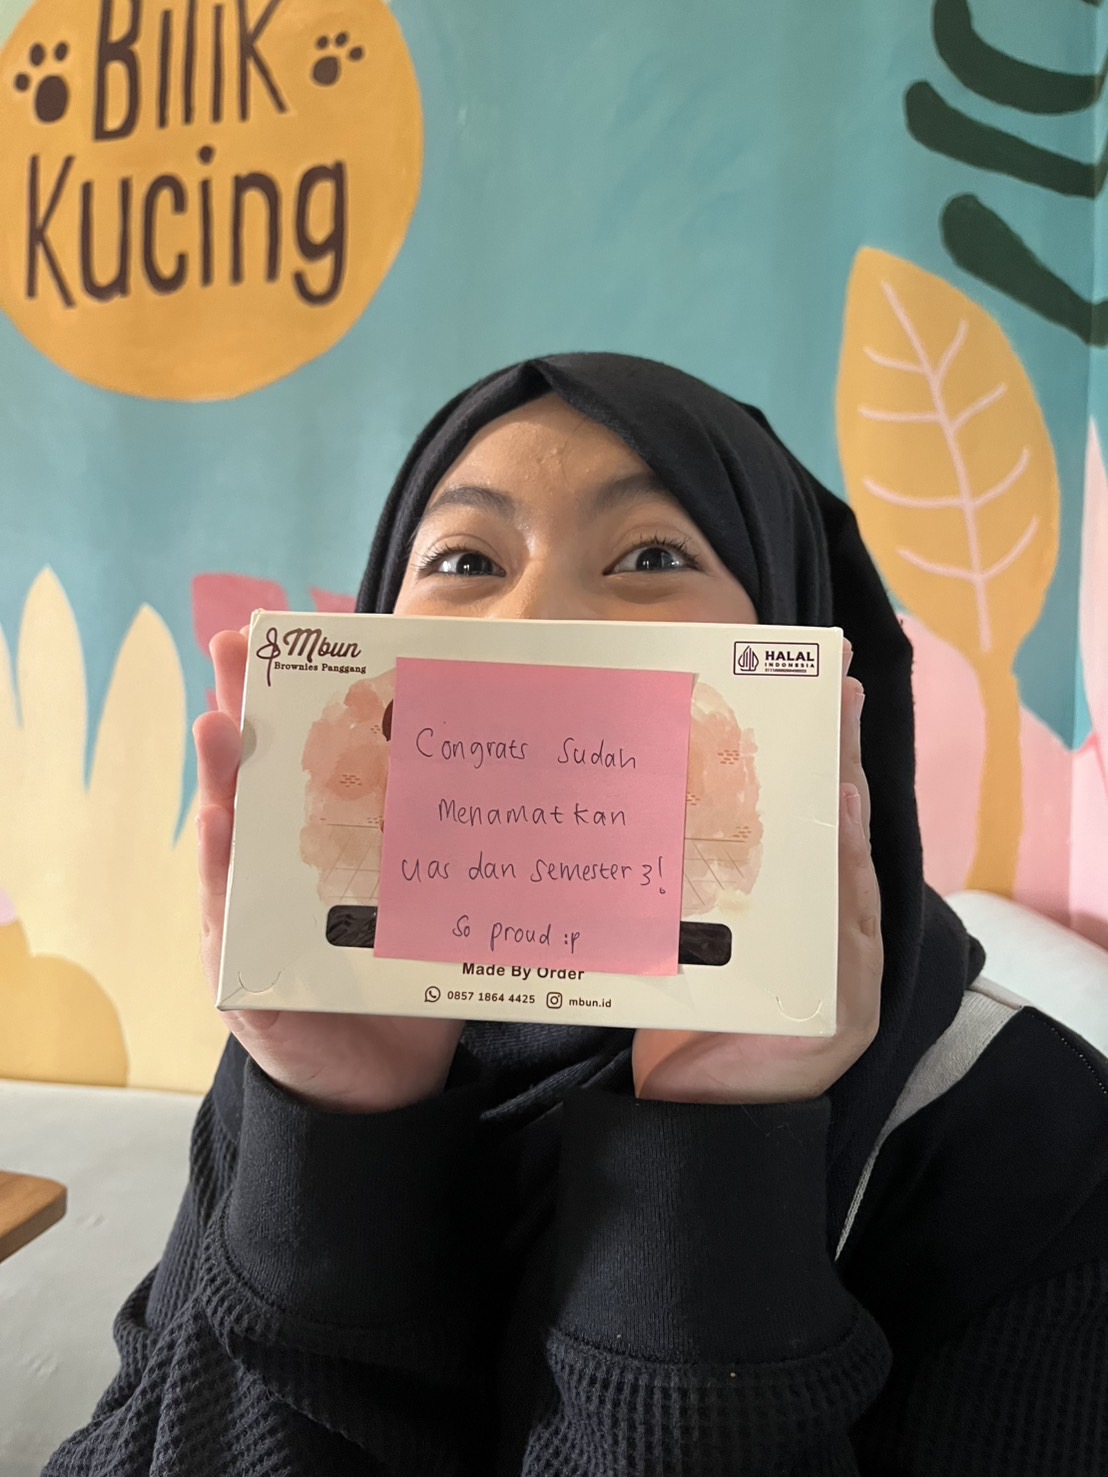 Bilik
Kucing
Mbun
Brownies Panggang
HALAL
INDONESIA
Congrats Sudah
Menamatkan
Uas dan Semester 3!
So proud :p
Made By Order
0857 1864 4425 mbun.id